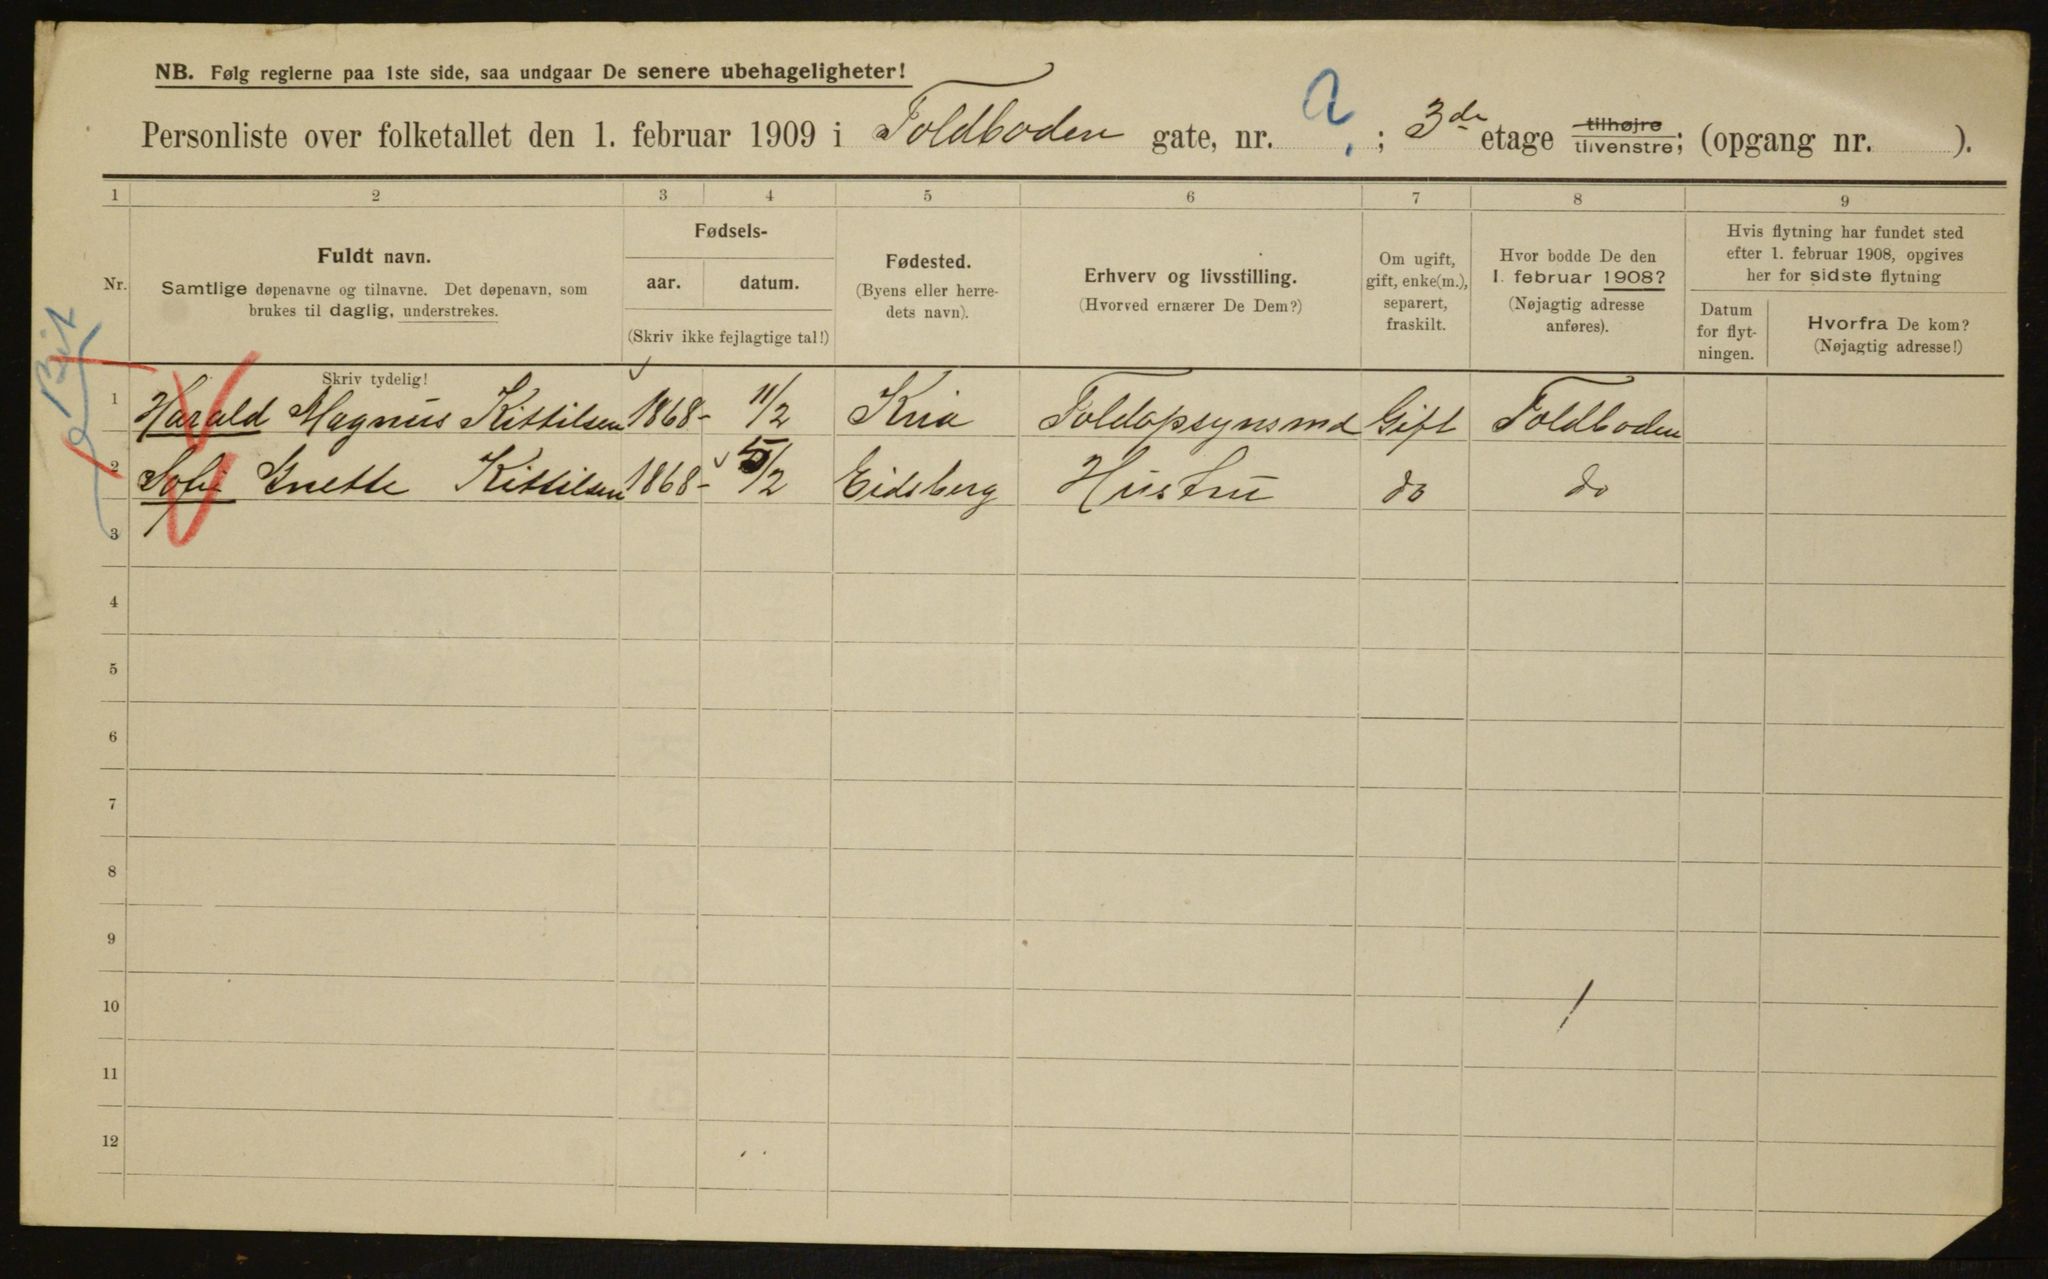 NB. Følg reglerne paa 1ste side, saa undgaar De senere ubehageligheter!
Personliste over folketallet den 1. februar 1909 i Toldboden gate, nr. ; 3de etage tilhøjre tilvenstre; (opgang nr. ).
1 2 3 4 5 6 7 8 9
Nr.
Fuldt navn.
Samtlige døpenavne og tilnavne. Det døpenavn, som
brukes til daglig, understrekes.
Skriv tydelig!
Fødsels-
aar. datum.
(Skriv ikke fejlagtige tal!)
Fødested.
(Byens eller herre-
dets navn).
Erhverv og livsstilling.
(Hvorved ernærer De Dem?)
Om ugift,
gift, enke(m.),
separert,
fraskilt.
Hvor bodde De den
1. februar 1908?
(Nøjagtig adresse
anføres).
Hvis flytning har fundet sted
efter 1. februar 1908, opgives
her for sidste flytning
Datum
for flyt-
ningen.
Hvorfra De kom?
(Nøjagtig adresse!)
1 Harald Magnus Kittilsen 1868- 11/2 Kria Toldopsynsmd Gift Toldboden
2 Sofie Kittilsen 1868- 5/2 Eidsberg Hustru do do
3
4
5
6
7
8
9
10
11
12